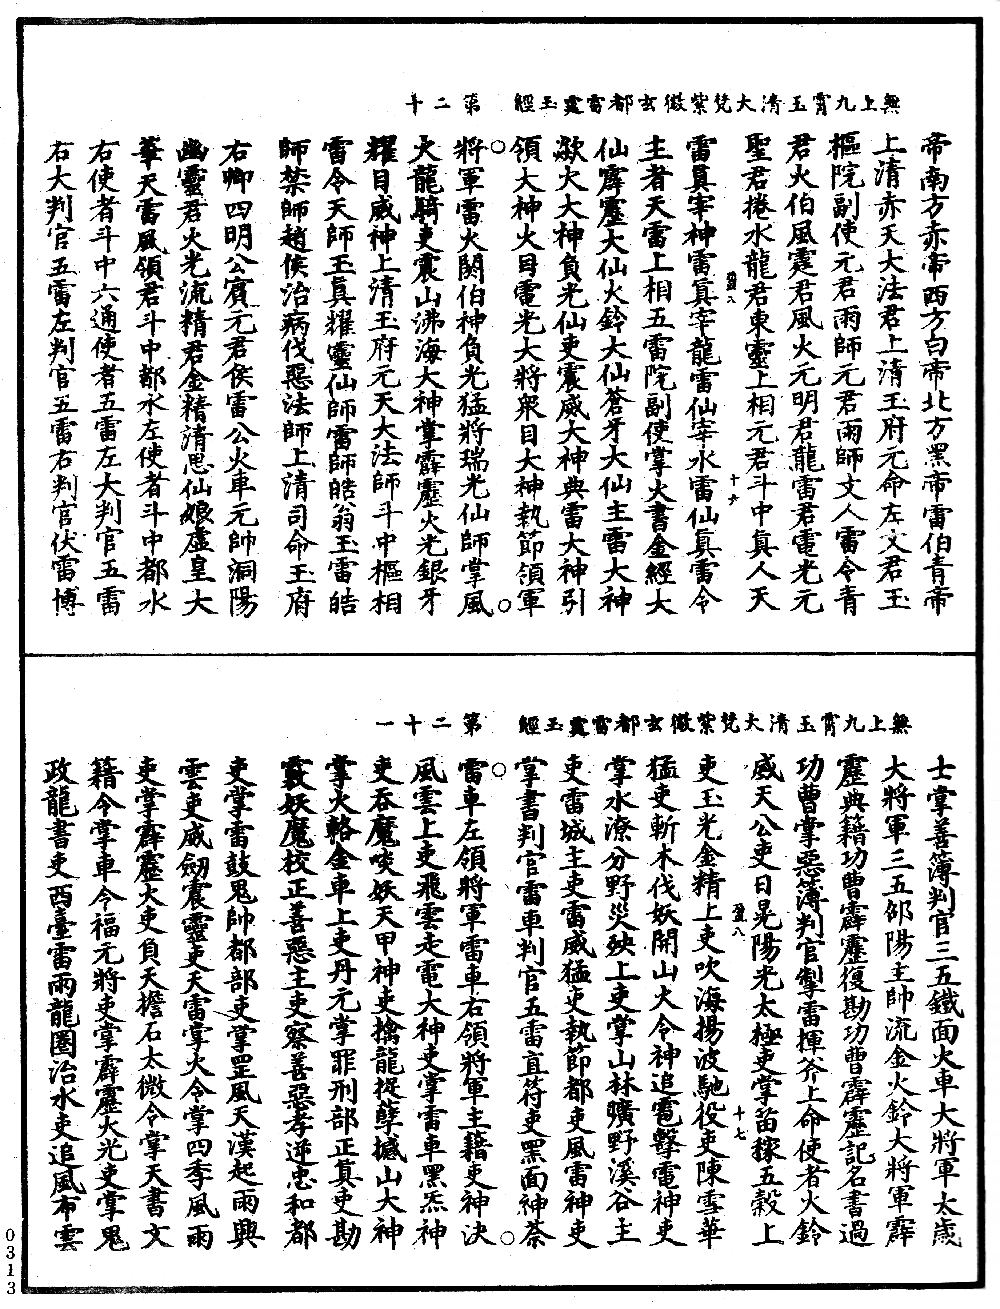 無上九霄玉清大梵紫微玄都雷霆玉經　第二十
帝南方赤帝西方白帝北方黑帝雷伯青帝
上清赤天大法君上清玉府元命左文君玉
樞院副使元君雨師元君雨師文人雷令青
君火伯風霆君風火元明君龍雷君電光元
聖君捲水龍君東靈上相元君斗中真人天
十六
雷真宰神雷真宰龍雷仙宰水雷仙真雷令
主者天雷上相五雷院副使掌火書金經大
仙霹靂大仙火鈴大仙蒼牙大仙主雷大神
歘火大神負光仙吏震威大神典雷大神引
領大神火目電光大將衆目大神執節領軍
將軍雷火閼伯神負光猛將瑞光仙師掌風
火龍騎吏震山沸海大神掌霹靂火光銀牙
耀目威神上清玉府元天大法師斗中樞相
雷令天師玉真耀靈仙師雷師皓翁玉雷皓
師禁師趙侯治病伐惡法師上清司命玉府
右卿四明公賓元君侯雷公火車元帥洞陽
幽靈君火光流精君金精清思仙娘虛皇大
華天雷風領君斗中都水左使者斗中都水
右使者斗中六通使者五雷左大判官五雷
右大判官五雷左判官五雷右判官伏雷博
無上九霄玉清大梵紫微玄都雷霆玉經　第二十一
士掌善簿判官三五鐵面火車大將軍太歲
大將軍三五邵陽主帥流金火鈴大將軍霹
靂典籍功曹霹靂復勘功曹霹靂記名書過
功曹掌惡簿判官掣雷揮斧上命使者火鈴
威天公吏日晃陽光太極吏掌苗稼五穀上
十七
吏玉光金精上吏吹海揚波馳役吏陳雪華
猛吏斬木伐妖開山大令神追電擊電神吏
掌水潦分野災殃上吏掌山林曠野溪谷主
吏雷城主吏雷威猛吏執節都吏風雷神吏
掌書判官雷車判官五雷直符吏黑面神荼
雷車左領將軍雷車右領將軍主籍吏神決
風雲上吏飛雲走電大神吏掌雷車黑炁神
吏吞魔啖妖天甲神吏擒龍捉孽撼山大神
掌火輅金車上吏丹元掌罪刑部正真吏勘
覈妖魔校正善惡主吏察善惡孝逆忠和都
吏掌雷鼓鬼帥都部吏掌罡風天漢起雨興
雲吏威劒震靈吏天雷掌火令掌四季風雨
吏掌霹靂火吏負天擔石太微令掌天書文
籍令掌車令福元將吏掌霹靂火光吏掌鬼
政龍書吏西臺雷雨龍圈治水吏追風布雲
0313